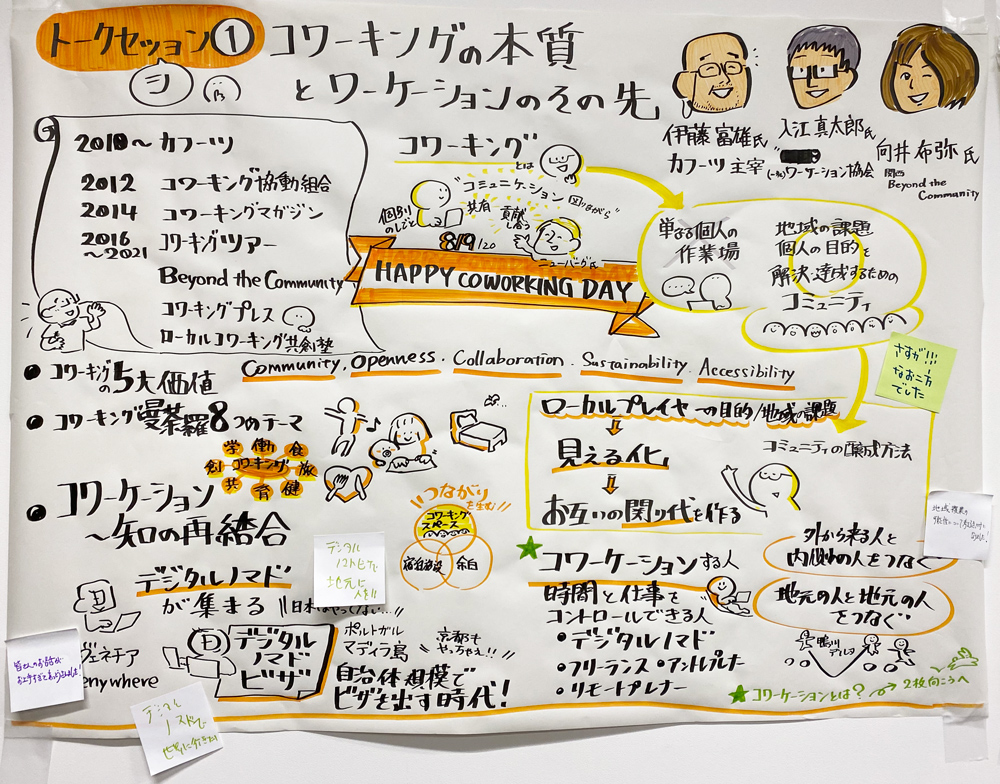 トークセッション① コワーキングの本質
とワーケーションのその先
伊藤富雄氏
カフーツ主宰
入江真太郎氏
(一社)ワーケーション協会
向井布弥氏
関西
Beyond the
Community
2010〜 カフーツ
2012 コワーキング協同組合
2014 コワーキングマガジン
2016
〜2021 コワーキングツアー
Beyond the Community
コワーキングプレス
ローカルコワーキング共創塾
コワーキング
とは
"コミュニケーション
図りながら"
個別の
しごと
共有
貢献
し合う
8/9/20
ニューバーグ氏
HAPPY COWORKING DAY
単なる個人の
作業場
地域の課題
個人の目的を
解決・達成するための
コミュニティ
さすが!!!
なお二方
でした
● コワーキング
の5大価値
Community. Openness. Collaboration. Sustainability. Accessibility
● コワーキング曼荼羅8つのテーマ
学 働 食
創 コワーキング 旅
共 育 健
● コワーケーション
〜知の再結合
つながり
を生む
コワーキング
スペース
宿泊施設
余白
ローカルプレイヤーの目的/地域の課題
⇩
見える化
⇩
お互いの関り代を作る
コミュニティの醸成方法
デジタルノマド
が集まる
デジタル
ノマドビザ
地元に
人を!!
デジタル
ノマド
ビザ
ポルトガル
マディラ島
京都も
やっちゃえ!!
自治体規模で
ビザを出す時代!
ヴェネチア
enywhere
デジタル
★コワーケーションする人
時間と仕事を
コントロールできる人
● デジタルノマド
● フリーランス・アントレプレナー
● リモートプレナー
外から来る人と
内側の人をつなぐ
地元の人と地元の人
をつなぐ
鴨川
★コワーケーションとは? → 2枚向こうへ